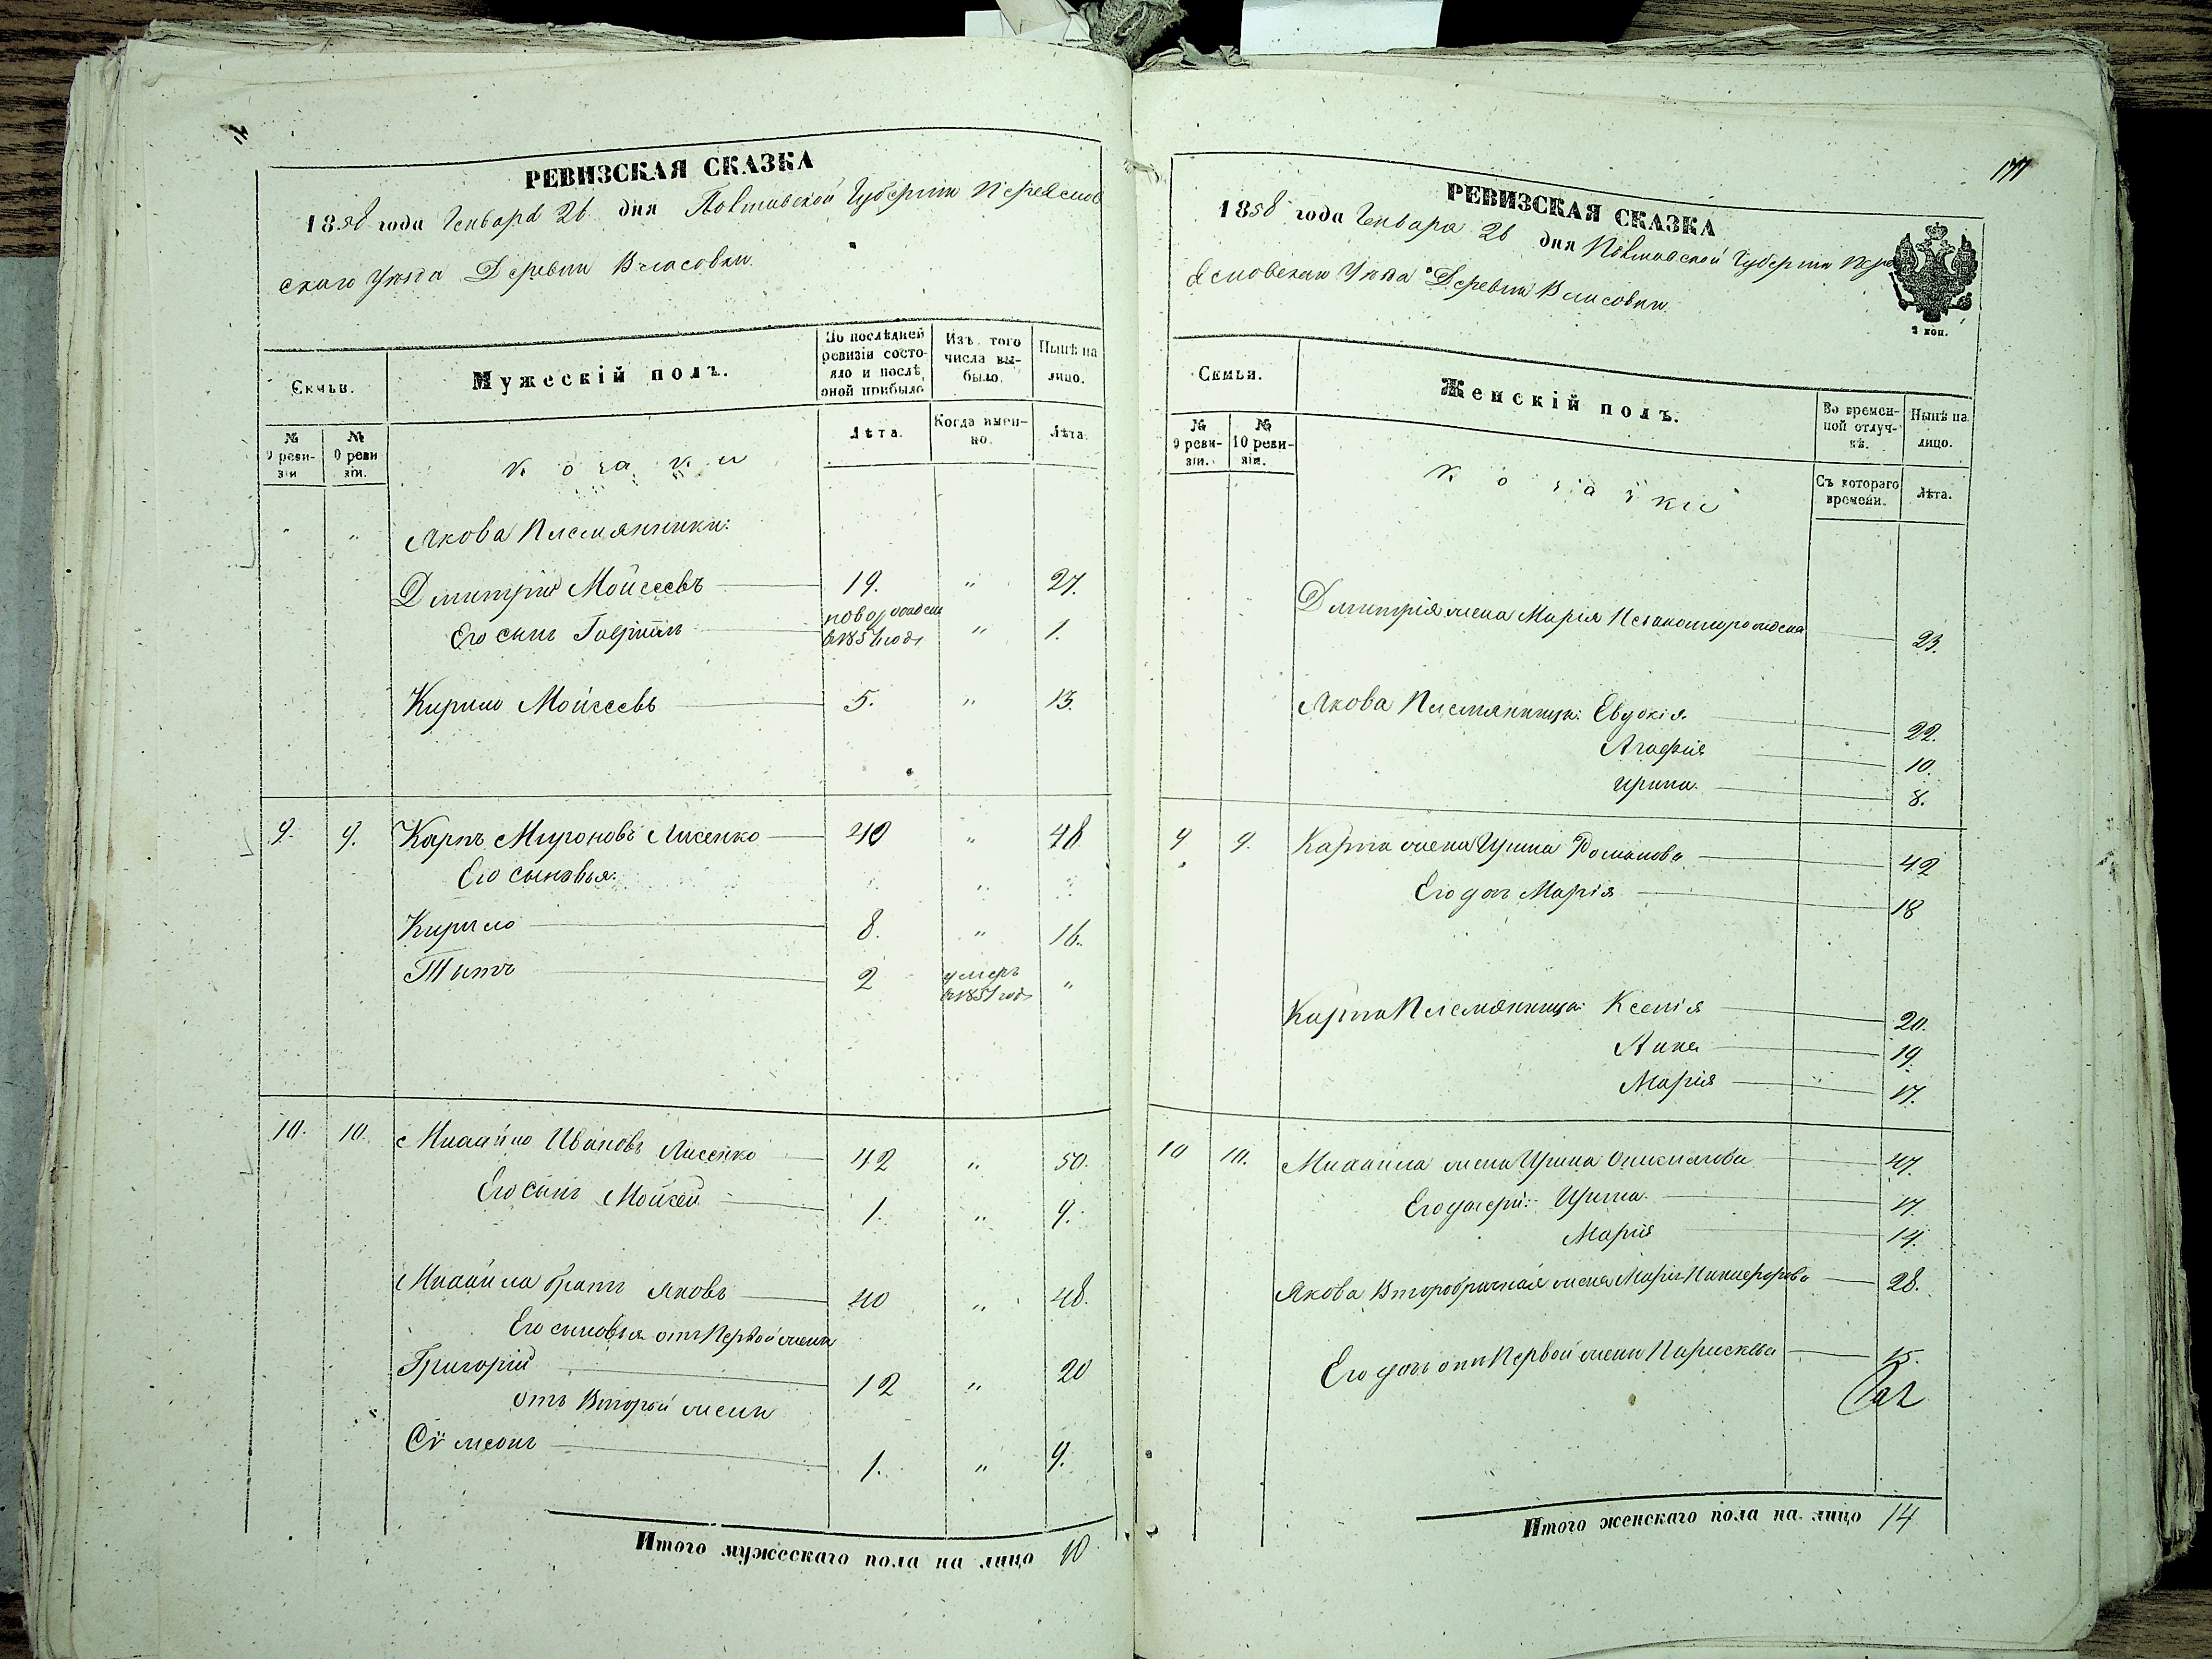 РЕВИЗСКАЯ СКАЗКА
1858 года Генваря 26 дня Полтавской Губерніи Переяслов
скаго Уѣзда Деревни Власовки
Семьи.
Мужескій полъ.
По послѣдней ревизіи состояло и послѣ оной прибыло
Изъ того числа выбыло.
Нынѣ на лицо.
№ 9 ревизіи
№ 10 ревизіи.
Козаки
Лѣта.
Когда именно.
Лѣта.
" " Якова Племянники:
Дмитрій Мойсеевъ 19. " 27.
Его сынъ Гавріилъ новорожден в 1857 годѣ " 1.
Кирило Мойсеевъ 5. " 13.
9. 9. Карпъ Мироновъ Лисенко 40 " 48
Его сыновья:
Кирило 8. " 16.
Титъ 2 умеръ в 1851 годѣ "
10. 10. Михайло Ивановъ Лисенко 42 " 50.
Его сынъ Мойсей 1. " 9.
Михайла братъ Яковъ 40 " 48.
Его сыновья отъ Первой жены
Григорій 12 " 20
отъ Второй жены
Сѵмеонъ 1. " 9.
Итого мужескаго пола на лицо 10
177
РЕВИЗСКАЯ СКАЗКА
1858 года Генваря 26 дня Полтавской Губерніи Пере
ясловскаго Уѣзда Деревни Власовки
2 коп.
Семьи.
Женскій полъ.
Во временной отлучкѣ.
Нынѣ на лицо.
№ 9 ревизіи.
№ 10 ревизіи.
Козачки
Съ котораго времени.
Лѣта.
Дмитрія жена Марія Незаконнорожденна 23.
Якова Племянницы: Евдокія 22.
Агафія 10.
Ирина 8.
9 9. Карпа жена Ирина Романова 42
Его дочь Марія 18
Карпа Племянницы: Ксенія 20.
Анна 19.
Марія 17.
10 10. Михайла жена Ирина 47.
Его дочери: Ирина 17.
Марія 14.
Якова Второбрачная жена Марія Никифорова 28.
Его дочь отъ Первой жены Параскева 15.
Итого женскаго пола на лицо 14